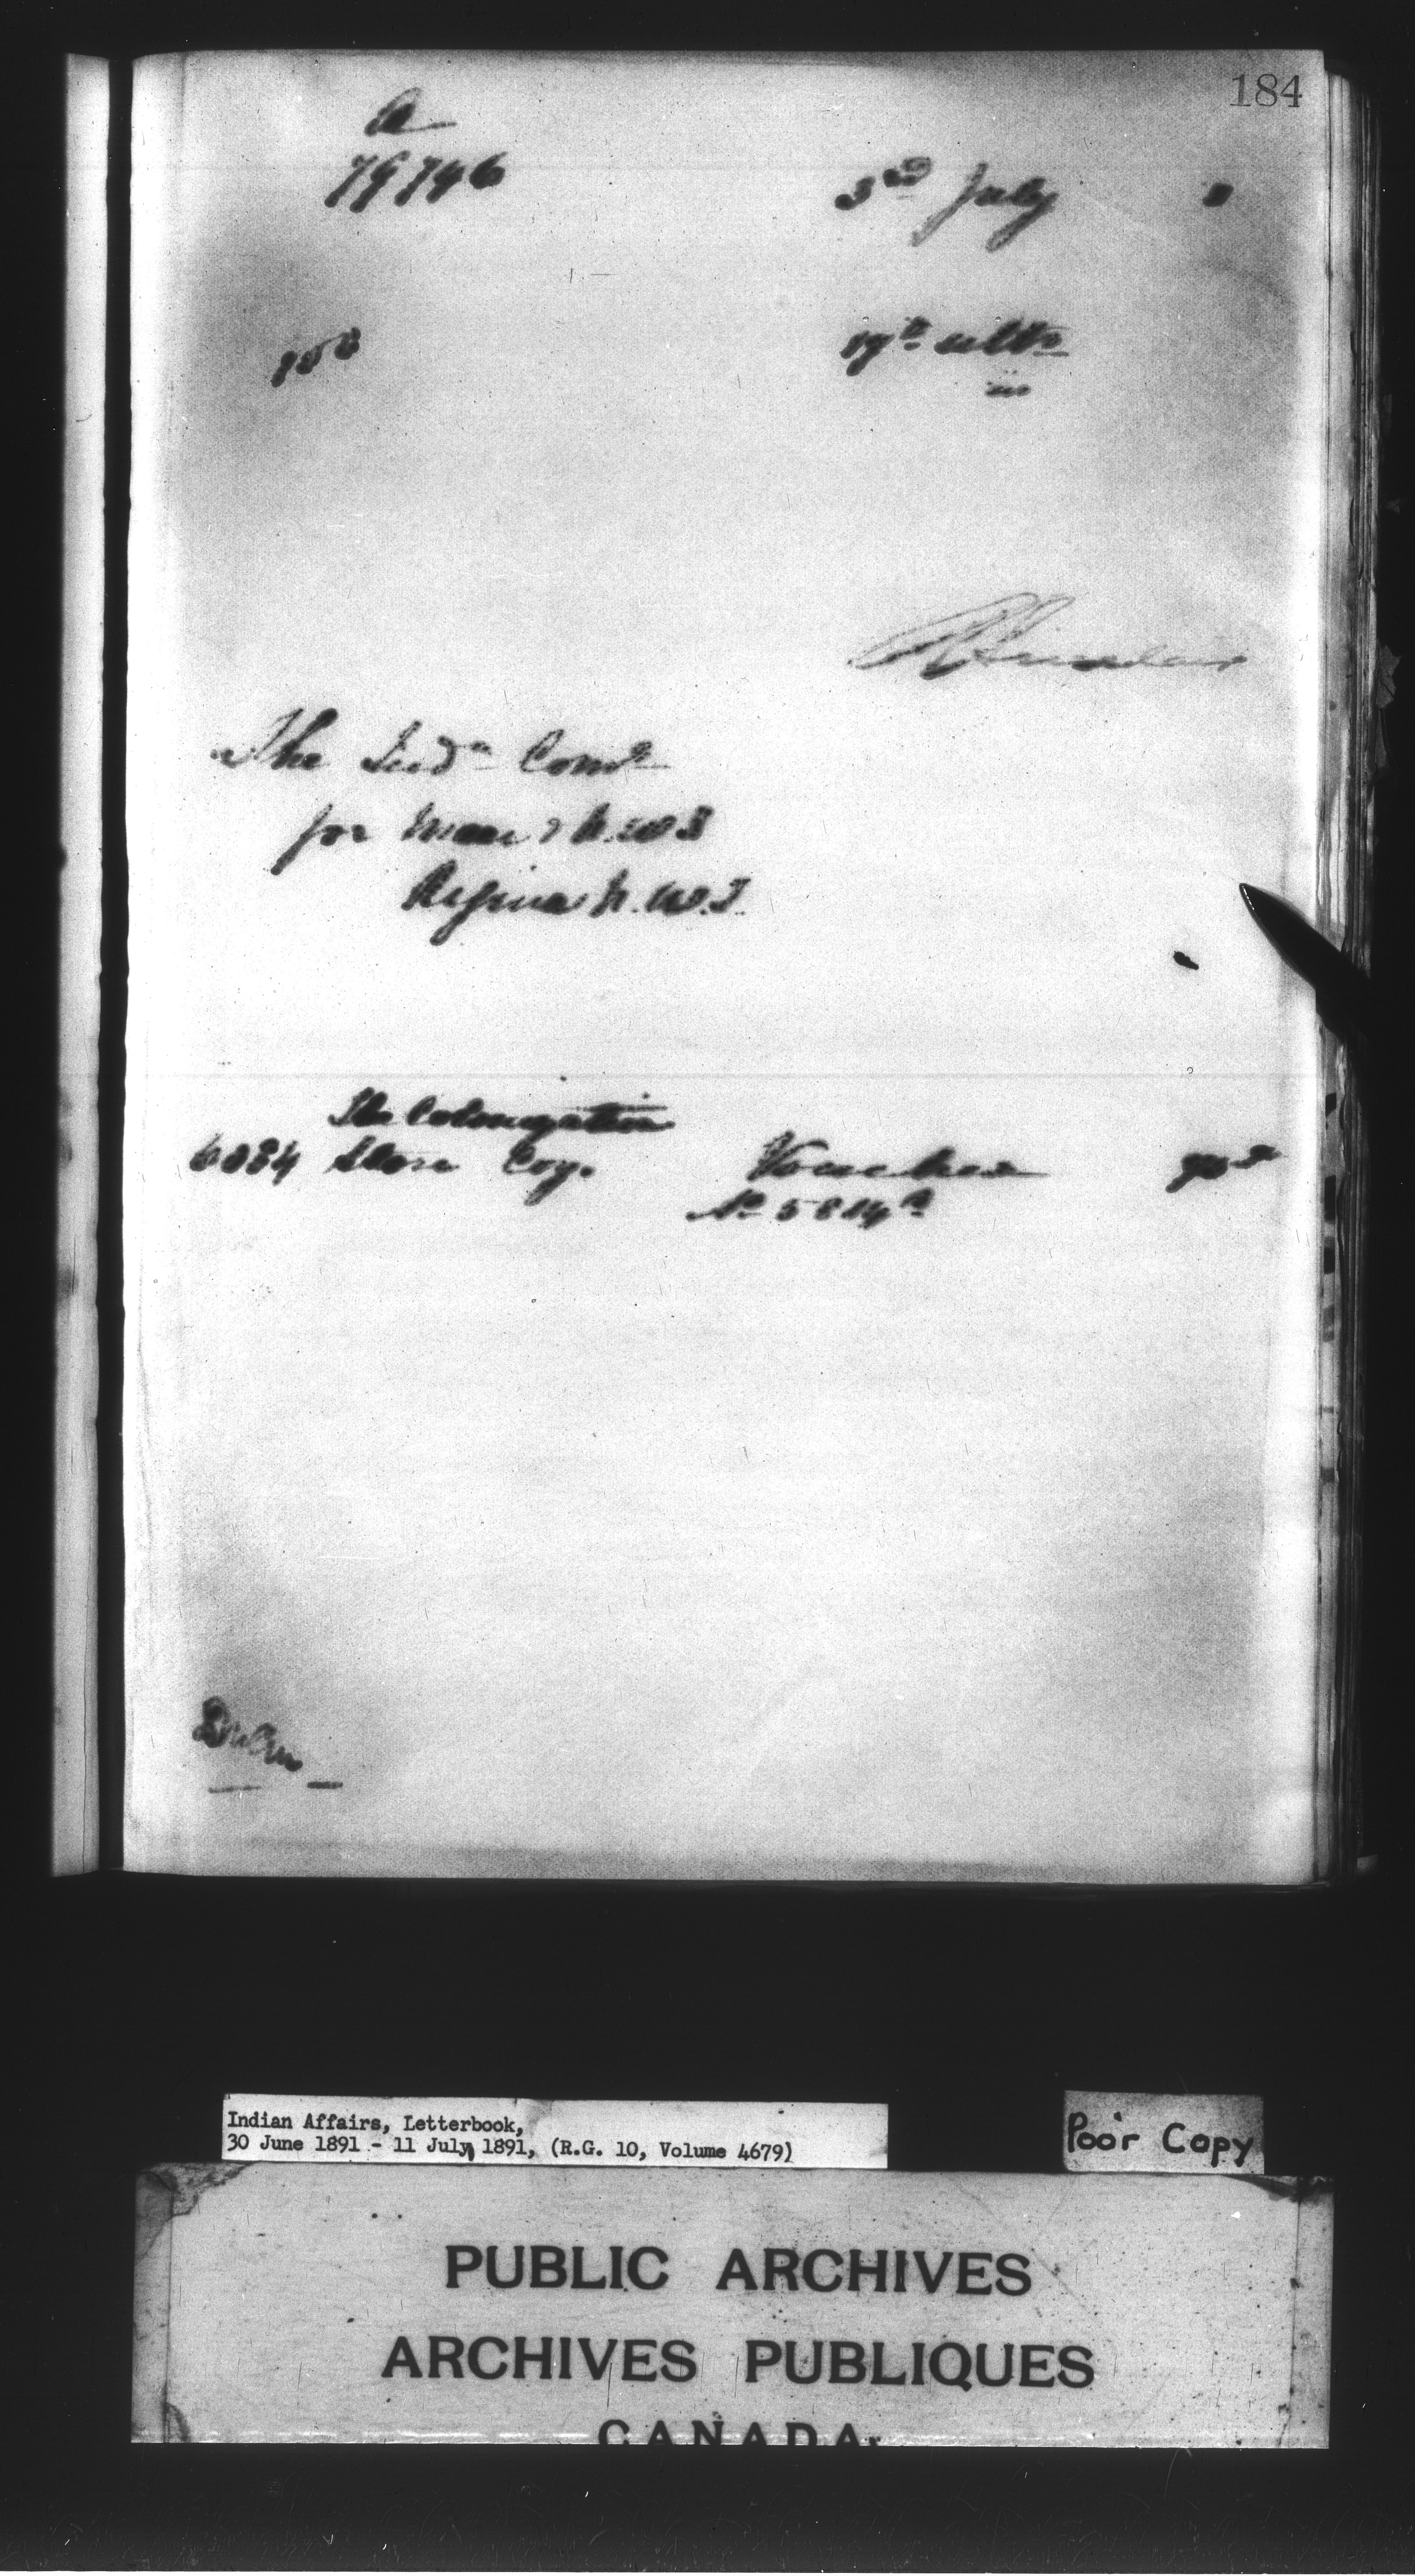 184
A
79746
3rd July
19th ulto
The Ind'n Comr
for Man & N.W.T
Regina N.W.T.
The Colonization
6034 Store Coy. Voucher
No 5814
Indian Affairs, Letterbook,
30 June 1891 - 11 July 1891, (R.G. 10, Volume 4679)
Poor Copy
PUBLIC ARCHIVES
ARCHIVES PUBLIQUES
CANADA